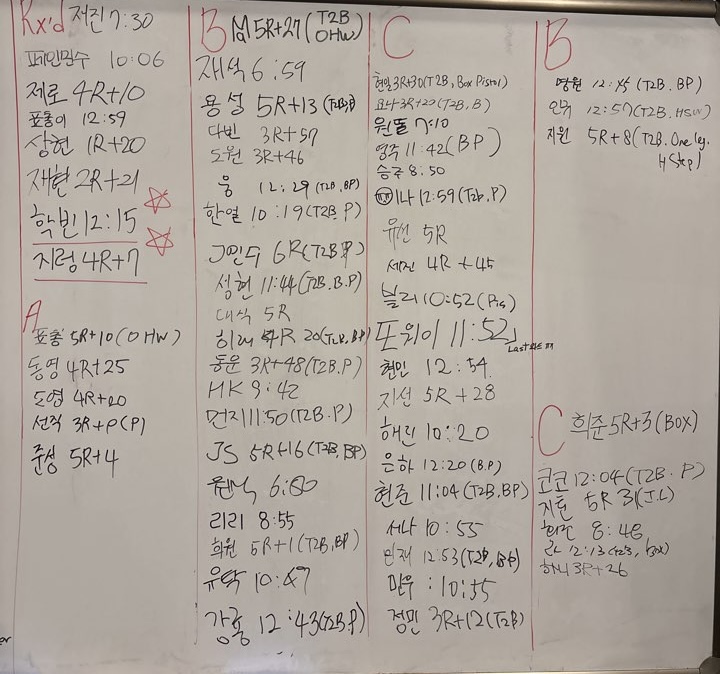 Rx'd 저진 7:30
페인만수 10:06
제로 4R+10
표출이 12:59
상현 1R+20
재현 2R+21
학빈 12:15
지렁 4R+7
A
표출 5R+10(OHW)
동영 4R+25
도영 4R+20
선직 3R+P(P)
준성 5R+4
B 5R+27(T2B OHW)
재석 6:59
용성 5R+13(T2B,B)
다빈 3R+57
도원 3R+46
웅 12:29(T2B.BP)
한열 10:19(T2B P)
J민수 6R(T2B.P)
성현 11:44(T2B.B.P)
대식 5R
4R 20(T2B,BP)
동운 3R+48(T2B.P)
HK 9:42
먼지 11:50(T2B.P)
JS 5R+16(T2B,BP)
리리 8:55
희원 5R+1(T2B,BP)
유탁 10:47
강홍 12:43(T2B.P)
C
현일 3R+30(T2B, Box Pistol)
요나 3R+20(T2B, B)
원똘 7:10
영주 11:42(BP)
승주 8:50
이나 12:59(T2b,P)
유선 5R
세진 4R+45
블리 10:52(Pis)
또위이 11:52
현민 12:54
지선 5R+28
해린 10:20
은하 12:20(B.P)
현준 11:04(T2B,BP)
서나 10:55
민재 12:53(T2B,BP)
민우 :10:55
정민 3R+12(T2B)
B
명원 12:45(T2B, BP)
민규 12:57(T2B.HSW)
지원 5R+8(T2B.One leg. H Step)
C 희준 5R+3(BOX)
코코 12:04(T2B. P)
지톤 5R 31(J.L)
희진 8:48
12:13(T2B, box)
하니 3R+26